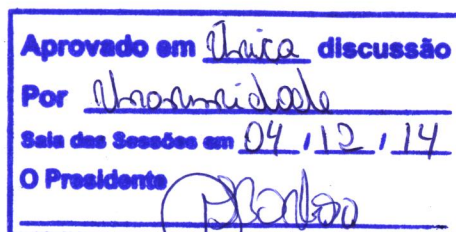 Aprovado em Única discussão
Por Unanimidade
Sala das Sessões em 04 / 12 / 14
O Presidente